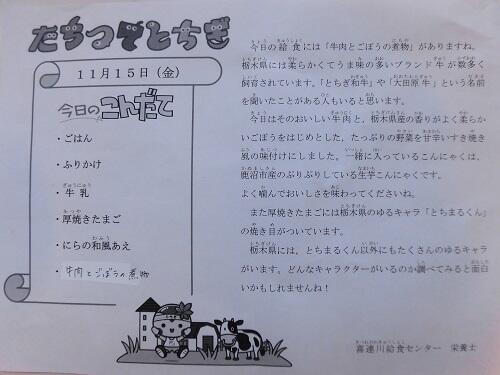 たちつてとちぎ
11月15日(金)
今日のこんだて
・ごはん
・ふりかけ
・牛乳
・厚焼きたまご
・にらの和風あえ
・牛肉とごぼうの煮物
今日の給食には「牛肉とごぼうの煮物」がありますね。
栃木県には柔らかくてうま味の多いブランド牛が数多く
飼育されています。「とちぎ和牛」や「大田原牛」という名前
を聞いたことがある人もいると思います。
今日はそのおいしい牛肉と、栃木県産の香りがよく柔らか
いごぼうをはじめとした、たっぷりの野菜を甘辛いすき焼き
風の味付けにしました。一緒に入っているこんにゃくは、
鹿沼市産のぷりぷりしている生芋こんにゃくです。
よく噛んでおいしさを味わってくださいね。
また厚焼きたまごには栃木県のゆるキャラ「とちまるくん」
の焼き目がついています。
栃木県には、とちまるくん以外にもたくさんのゆるキャラ
がいます。どんなキャラクターがいるのか調べてみると面白
いかもしれませんね!
喜連川給食センター 栄養士